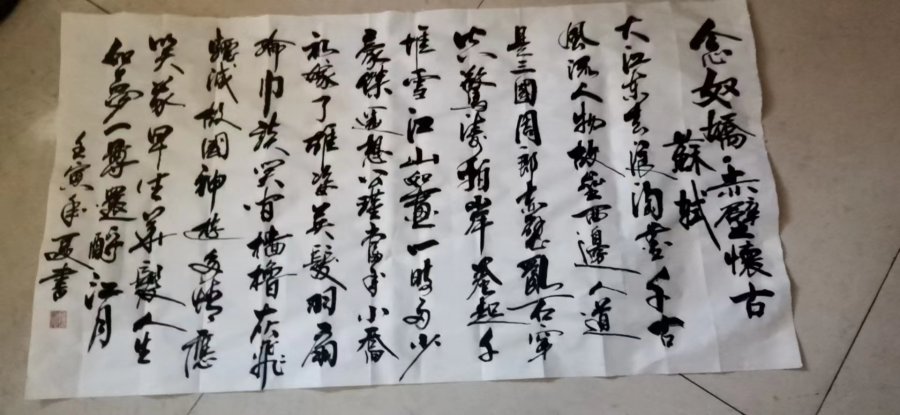 念奴嬌·赤壁懷古
蘇軾
大江东去浪淘盡千古
風流人物故壘西邊人道
是三國周郎赤壁亂石穿
空驚濤拍岸卷起千
堆雪江山如畫一時多少
豪傑遥想公瑾當年小喬
初嫁了雄姿英髮羽扇
綸巾談笑间檣櫓灰飛
煙滅故國神遊多情應
笑我早生華髮人生
如夢一尊還酹江月
壬寅年夏書